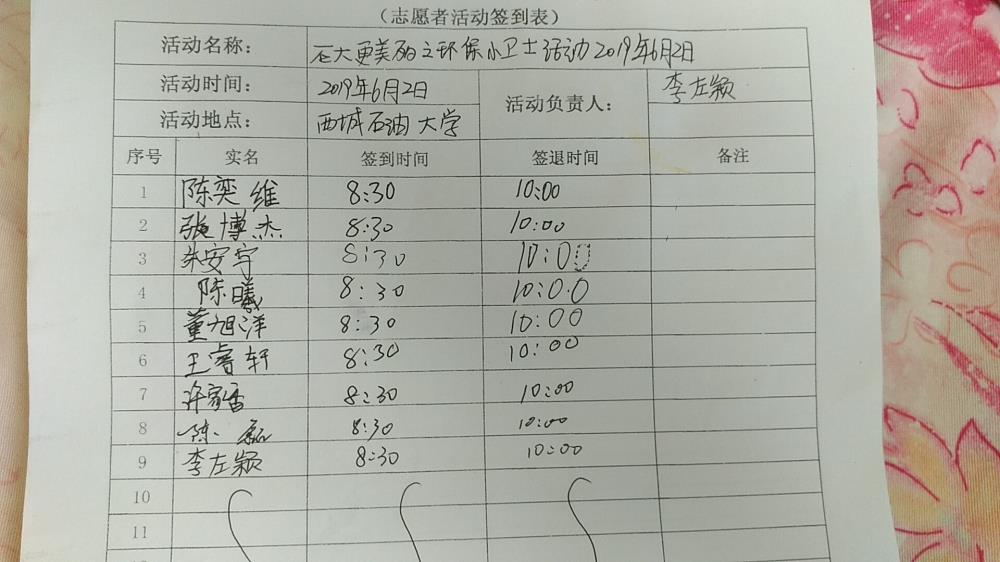 （志愿者活动签到表）
活动名称： 石大更美丽之环保小卫士活动2019年6月2日
活动时间： 2019年6月2日 活动负责人： 李左颖
活动地点： 西城石油大学
序号 实名 签到时间 签退时间 备注
1 陈奕维 8:30 10:00
2 张博杰 8:30 10:00
3 朱安宇 8:30 10:00
4 陈曦 8:30 10:00
5 董旭洋 8:30 10:00
6 王睿轩 8:30 10:00
7 8:30 10:00
8 陈磊 8:30 10:00
9 李左颖 8:30 10:00
10
11